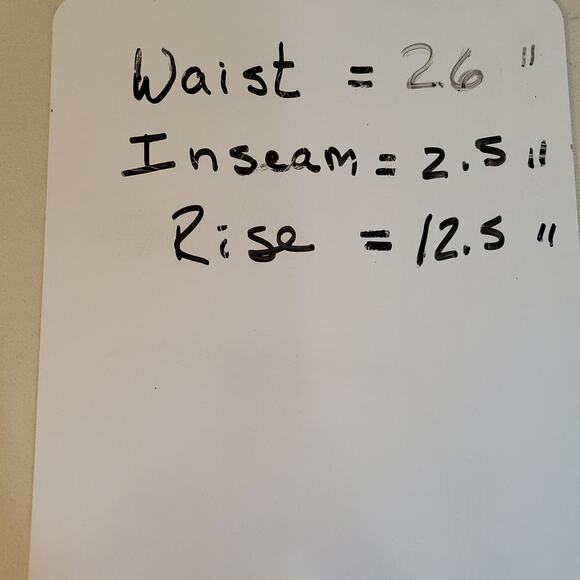 Waist = 26 "
Inseam = 2.5 "
Rise = 12.5 "